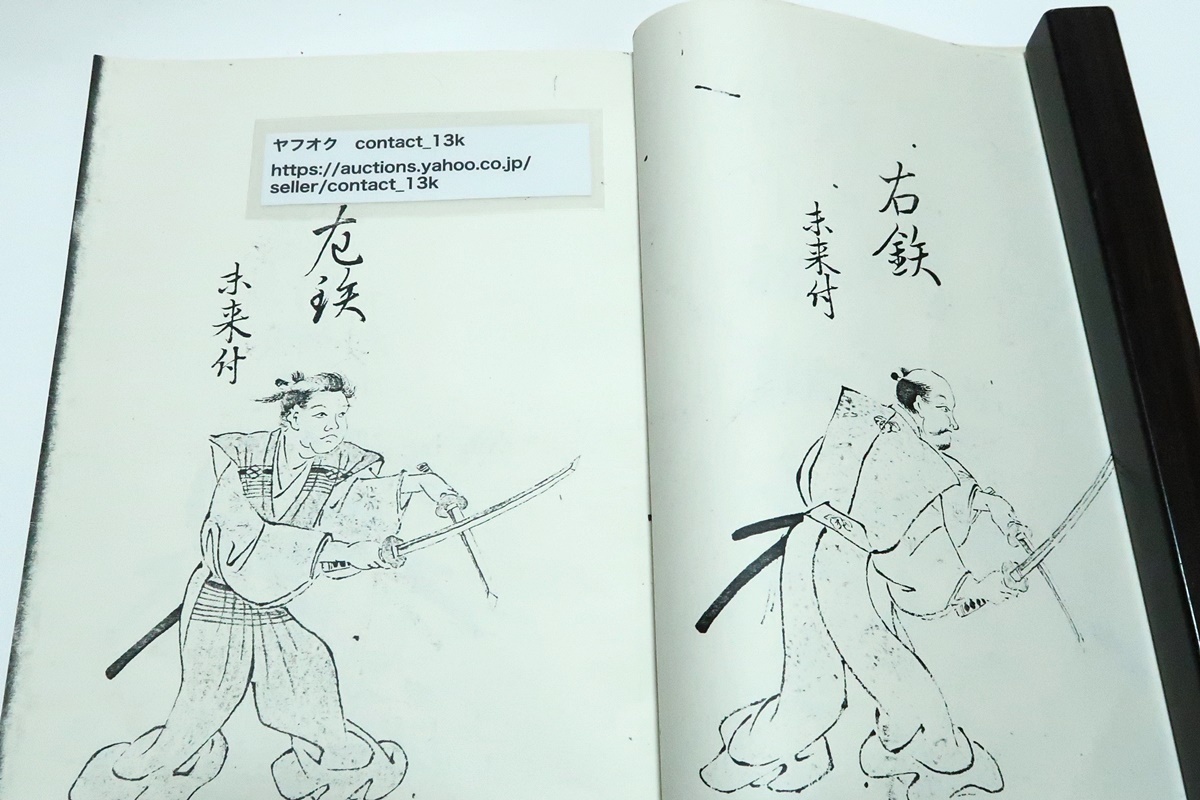 ヤフオク　contact_13k
https://auctions.yahoo.co.jp/
seller/contact_13k
右鉄
未来付
左鉄
未来付